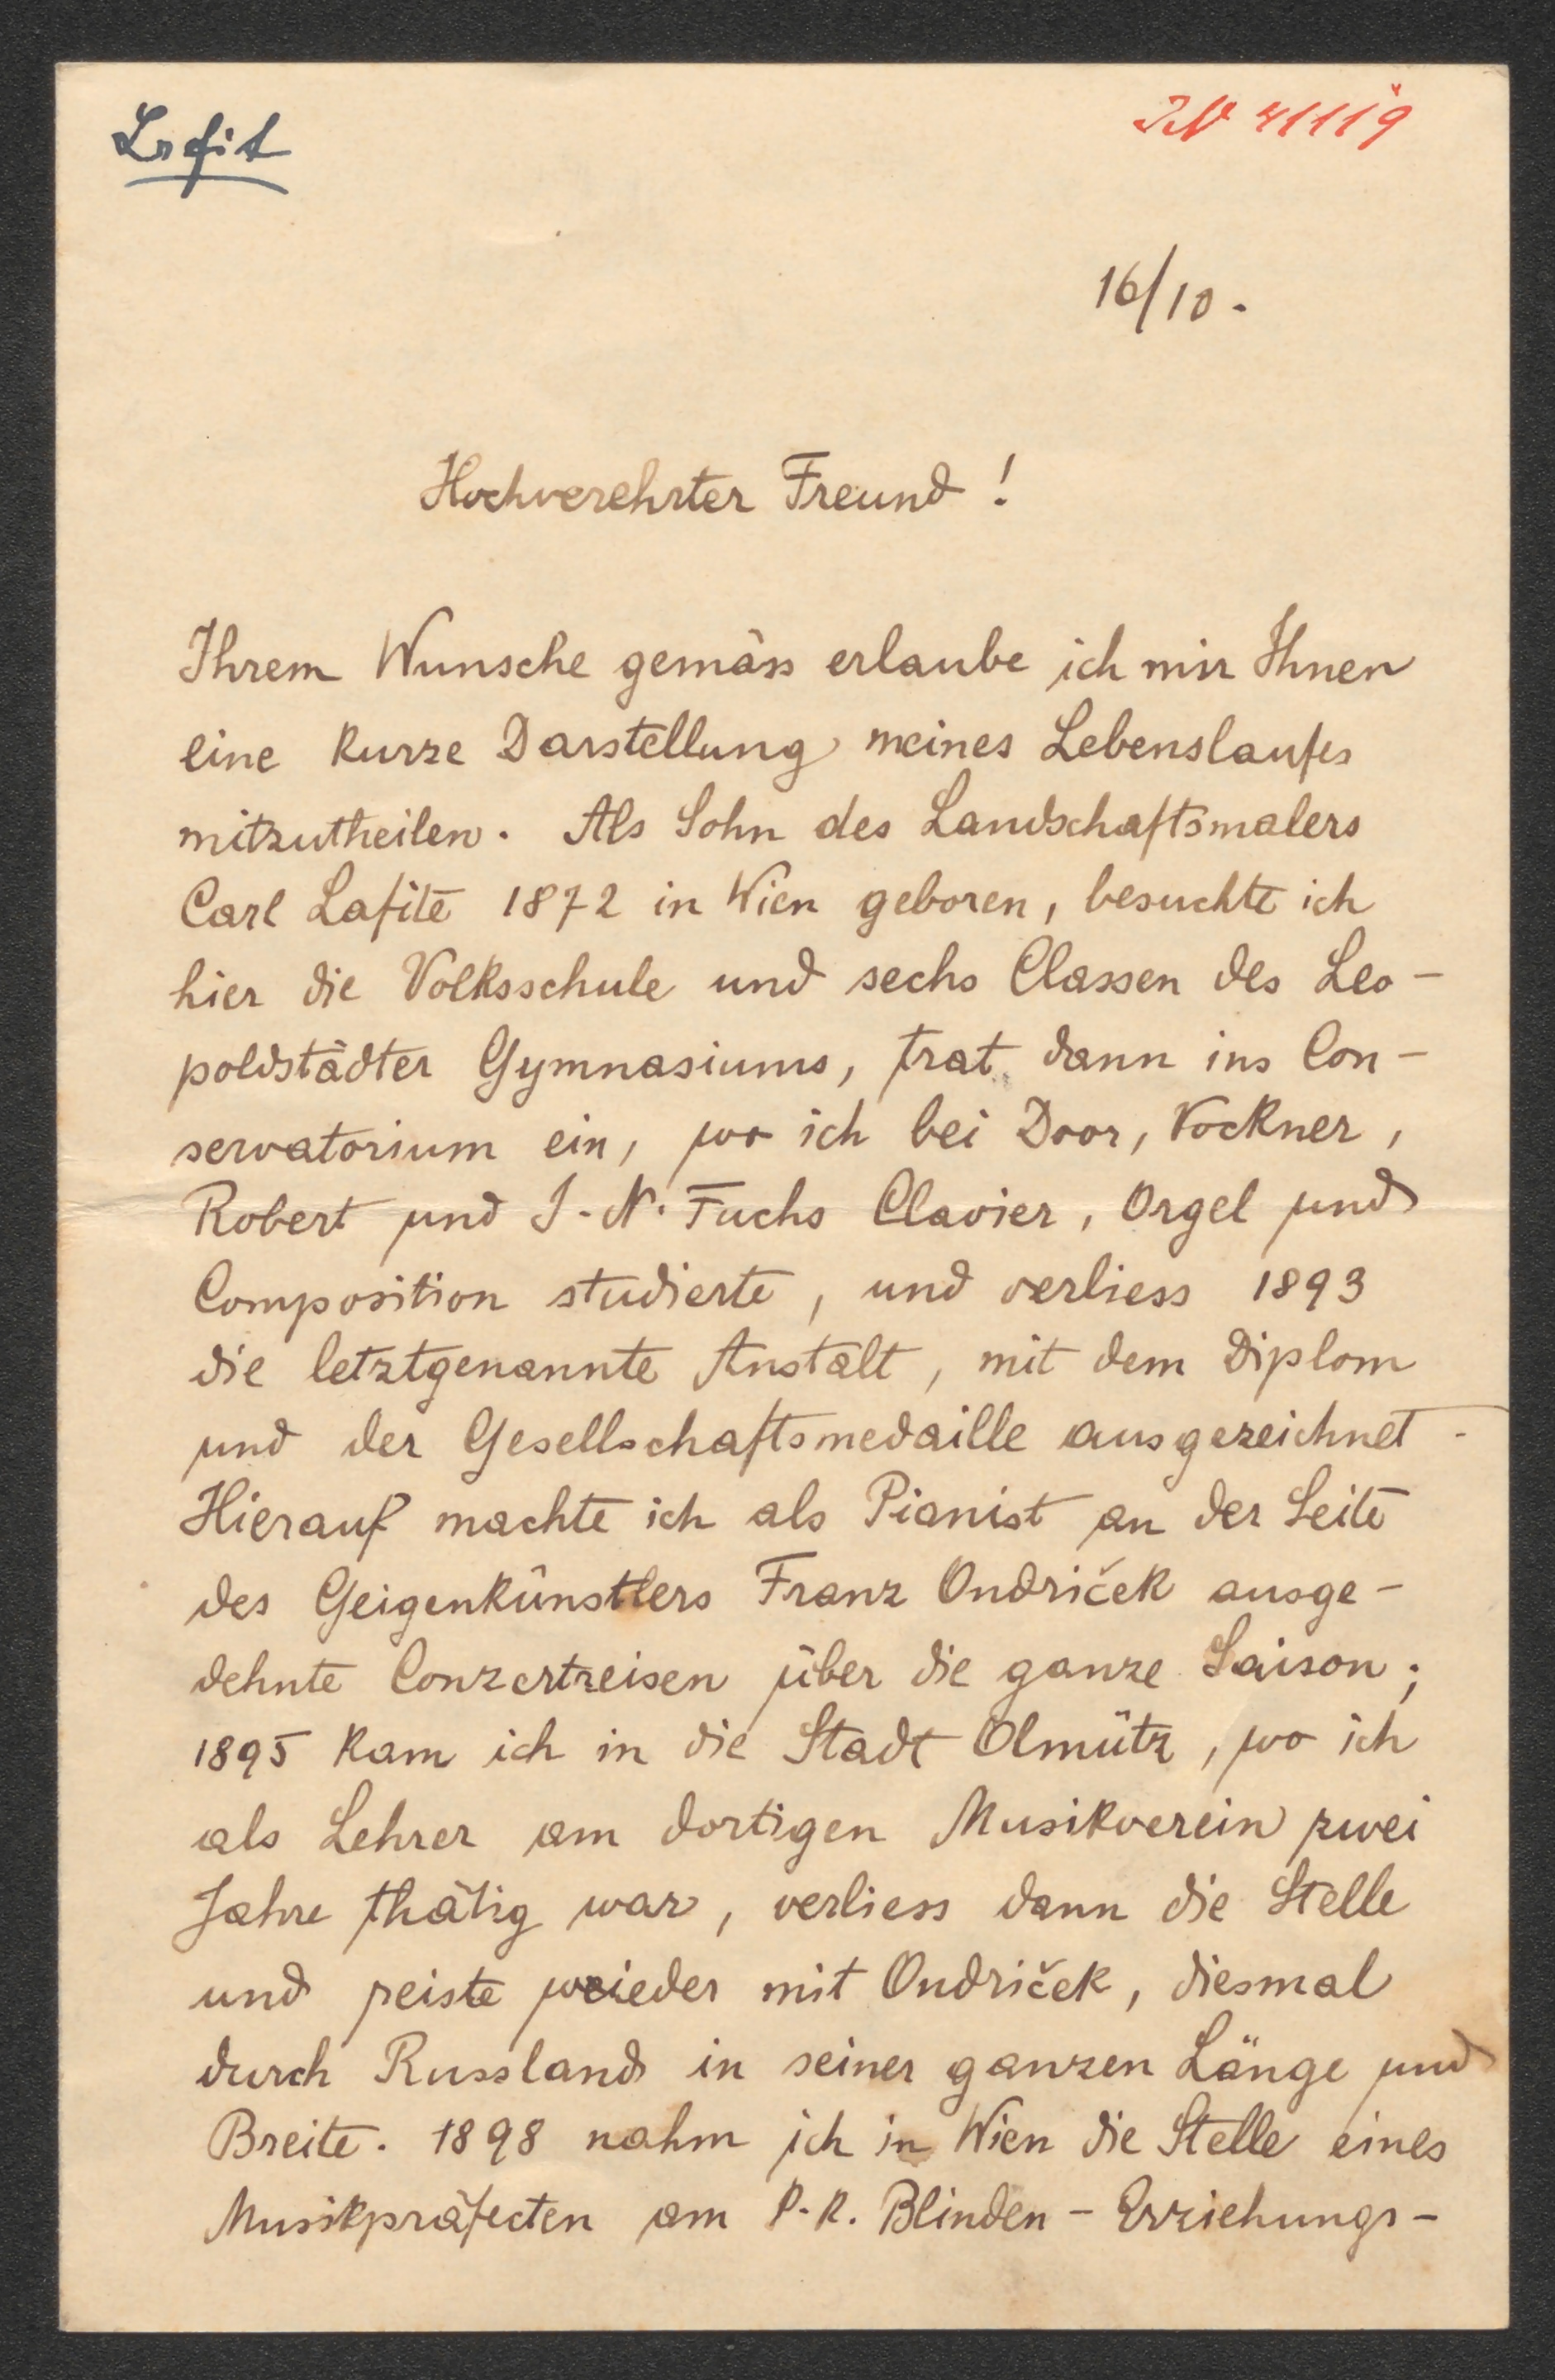 Lafit
IN 41119
16/10.
Hochverehrter Freund!
Ihrem Wunsche gemäss erlaube ich mir Ihnen
eine kurze Darstellung meines Lebenslaufes
mitzutheilen. Als Sohn des Landschaftsmalers
Carl Lafite 1872 in Wien geboren, besuchte ich
hier die Volksschule und sechs Classen des Leo-
poldstädter Gymnasiums, trat dann ins Con-
servatorium ein, wo ich bei Door, Vockner,
Robert und J. N. Fuchs Clavier, Orgel und
Composition studierte, und verliess 1893
die letztgenannte Anstalt, mit dem Diplom
und der Gesellschaftsmedaille ausgezeichnet.
Hierauf machte ich als Pianist an der Seite
des Geigenkünstlers Franz Ondriček ausge-
dehnte Conzertreisen über die ganze Saison;
1895 kam ich in die Stadt Olmütz, wo ich
als Lehrer am dortigen Musikverein zwei
Jahre thätig war, verliess dann die Stelle
und reiste wieder mit Ondriček, diesmal
durch Russland in seiner ganzen Länge und
Breite. 1898 nahm ich in Wien die Stelle eines
Musikpräfecten am k. k. Blinden-Erziehungs-